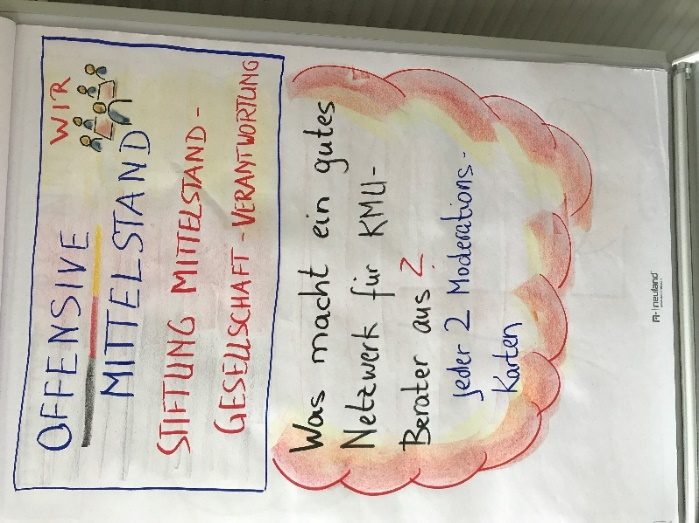 WIR
OFFENSIVE
MITTELSTAND
STIFTUNG MITTELSTAND -
GESELLSCHAFT - VERANTWORTUNG
Was macht ein gutes
Netzwerk für KMU-
Berater aus?
jeder 2 Moderations-
Karten
neuland